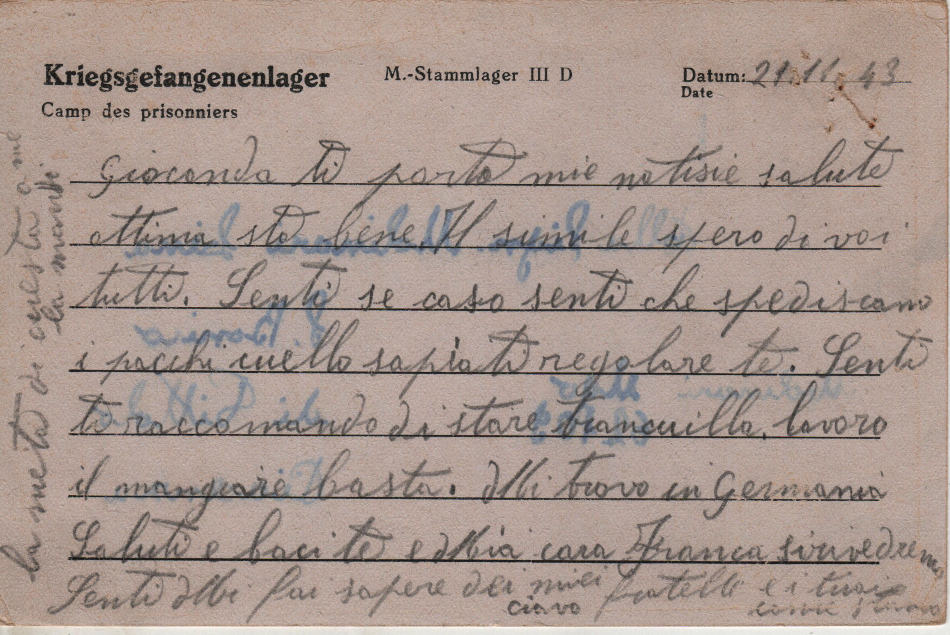 Kriegsgefangenenlager
M.-Stammlager III D
Datum: 21.11.43
Date
Camp des prisonniers
Gioconda ti porto mie notisie salute
ottima sto bene. Il simile spero di voi
tutti. Senti se caso senti che spediscano
i pacchi cuello sapiati regolare te. Senti
ti raccomando di stare trancuilla, lavoro
il mangiare basta. Mi trovo in Germania
Saluti e baci te e Mia cara Franca si rivedremo
Senti Mi fai sapere dei miei fratelli e i tuoi
ciavo
come
la metà di cuesta a me
la mandi